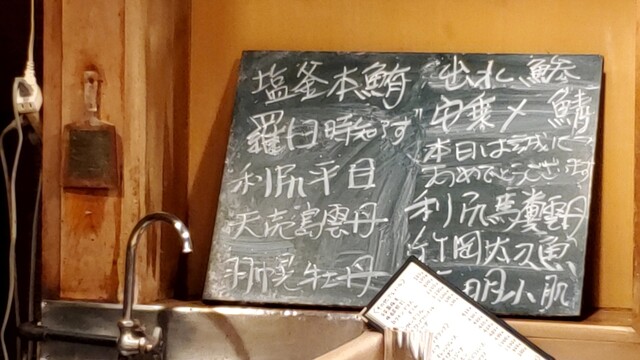 塩釜本鮪
羅臼時知らず
利尻平目
天売島雲丹
羽幌牡丹
出水鯵
安乗〆鯖
本日は誠に
おめでとうございます
利尻馬糞雲丹
竹岡太刀魚
明小肌